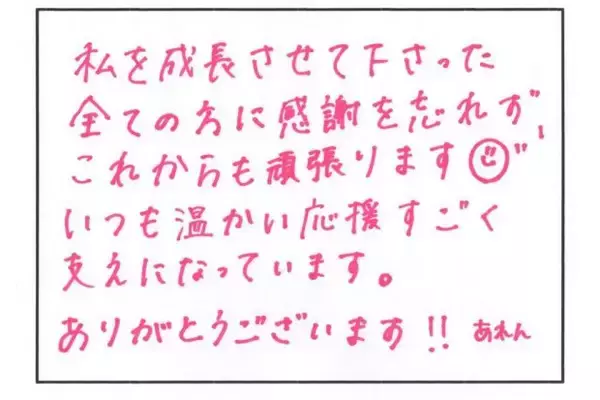 私を成長させて下さった
全ての方に感謝を忘れず、
これからも頑張ります
いつも温かい応援すごく
支えになっています。
ありがとうございます!! あれん